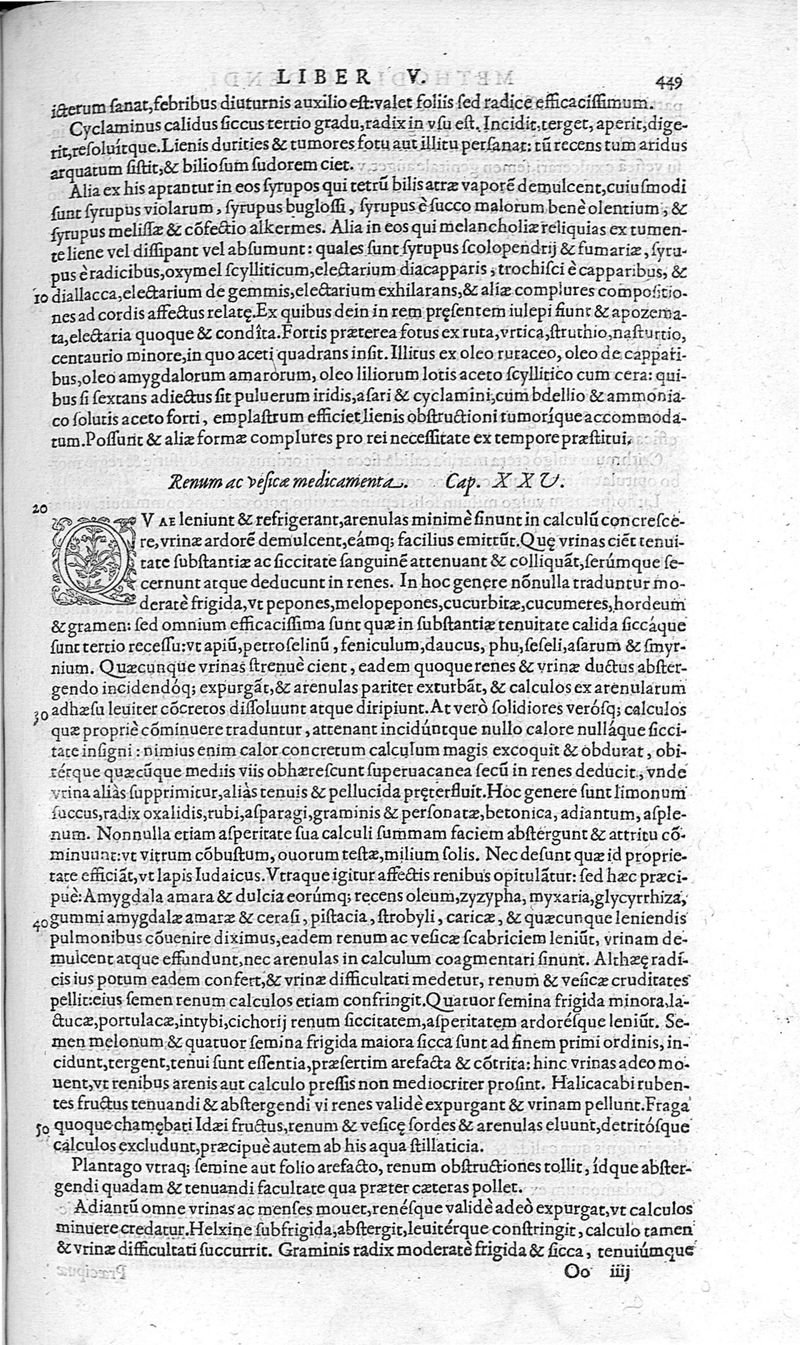 LIBER V. 449
icterum ſanat,febribus diuturnis auxilio eſt:valet foliis ſed radice efficaciſſimum.
Cyclaminus calidus ſiccus tertio gradu,radix in vſu eſt. Incidit,terget, aperit,dige-
rit,reſoluítque.Lienis durities & tumores fotu aut illitu perſanat: tū recens tum aridus
arquatum ſiſtit,& bilioſum ſudorem ciet.
Alia ex his aptantur in eos ſyrupos qui tetrū bilis atræ vaporē demulcent,cuiuſmodi
ſunt ſyrupus violarum, ſyrupus bugloſſi, ſyrupus è ſucco malorum benè olentium, &
ſyrupus meliſſæ & cōfectio alkermes. Alia in eos qui melancholiæ reliquias ex tumen-
te liene vel diſſipant vel abſumunt: quales ſunt ſyrupus ſcolopendrij & fumariæ, ſyru-
pus è radicibus,oxymel ſcylliticum,electarium diacapparis, trochiſci è capparibus, &
10 diallacca,electarium de gemmis,electarium exhilarans,& aliæ complures compoſitio-
nes ad cordis affectus relatę.Ex quibus dein in rem pręſentem iulepi fiunt & apozema-
ta,electaria quoque & condîta.Fortis præterea fotus ex ruta,vrtica,ſtruthio,naſturtio,
centaurio minore,in quo aceti quadrans inſit. Illitus ex oleo rutaceo, oleo de cappari-
bus,oleo amygdalorum amarorum, oleo liliorum lotis aceto ſcyllitico cum cera: qui-
bus ſi ſextans adiectus ſit puluerum iridis,aſari & cyclamini,cum bdellio & ammonia-
co ſolutis aceto forti, emplaſtrum efficiet lienis obſtructioni tumoríque accommoda-
tum.Poſſunt & aliæ formæ complures pro rei neceſſitate ex tempore præſtitui.
Renum ac veſicæ medicamenta. Cap. XXV.
20
QVAE leniunt & refrigerant,arenulas minimè ſinunt in calculū concreſce-
re,vrinæ ardorē demulcent,eámq; facilius emittūt.Quę vrinas ciēt tenui-
tate ſubſtantiæ ac ſiccitate ſanguinē attenuant & colliquāt,ſerúmque ſe-
cernunt atque deducunt in renes. In hoc genere nōnulla traduntur mo-
deratè frigida,vt pepones,melopepones,cucurbitæ,cucumeres,hordeum
& gramen: ſed omnium efficaciſſima ſunt quæ in ſubſtantiæ tenuitate calida ſiccáque
ſunt tertio receſſu:vt apiū,petroſelinū, feniculum,daucus, phu,ſeſeli,aſarum & ſmyr-
nium. Quæcunque vrinas ſtrenuè cient, eadem quoque renes & vrinæ ductus abſter-
gendo incidendóq; expurgāt,& arenulas pariter exturbāt, & calculos ex arenularum
30 adhæſu leuiter cōcretos diſſoluunt atque diripiunt.At verò ſolidiores veróſq; calculos
quæ propriè cōminuere traduntur, attenant incidúntque nullo calore nulláque ſicci-
tate inſigni: nimius enim calor concretum calculum magis excoquit & obdurat, obi-
térque quæcūque mediis viis obhæreſcunt ſuperuacanea ſecū in renes deducit, vnde
vrina aliàs ſupprimitur,aliàs tenuis & pellucida pręterfluit.Hoc genere ſunt limonum
ſuccus,radix oxalidis,rubi,aſparagi,graminis & perſonatæ,betonica, adiantum, aſple-
num. Nonnulla etiam aſperitate ſua calculi ſummam faciem abſtergunt & attritu cō-
minuunt:vt vitrum cōbuſtum, ouorum teſtæ,milium ſolis. Nec deſunt quæ id proprie-
tate efficiāt,vt lapis Iudaicus.Vtraque igitur affectis renibus opitulātur: ſed hæc præci-
puè:Amygdala amara & dulcia eorúmq; recens oleum,zyzypha, myxaria,glycyrrhiza,
40 gummi amygdalæ amaræ & ceraſi, piſtacia, ſtrobyli, caricæ, & quæcunque leniendis
pulmonibus cōuenire diximus,eadem renum ac veſicæ ſcabriciem leniūt, vrinam de-
mulcent atque effundunt,nec arenulas in calculum coagmentari ſinunt. Althæę radí-
cis ius potum eadem confert,& vrinæ difficultati medetur, renum & veſicæ cruditates
pellit:eius ſemen renum calculos etiam confringit.Quatuor ſemina frigida minora,la-
ctucæ,portulacæ,intybi,cichorij renum ſiccitatem,aſperitatem ardoréſque leniūt. Se-
men melonum & quatuor ſemina frigida maiora ſicca ſunt ad finem primi ordinis, in-
cidunt,tergent,tenui ſunt eſſentia,præſertim arefacta & cōtrita: hinc vrinas adeo mo-
uent,vt renibus arenis aut calculo preſſis non mediocriter proſint. Halicacabi ruben-
tes fructus tenuandi & abſtergendi vi renes validè expurgant & vrinam pellunt.Fraga
50 quoque chamębati Idæi fructus,renum & veſicę ſordes & arenulas eluunt,detritóſque
calculos excludunt,præcipuè autem ab his aqua ſtillaticia.
Plantago vtraq; ſemine aut folio arefacto, renum obſtructiones tollit, ídque abſter-
gendi quadam & tenuandi facultate qua præter cæteras pollet.
Adiantū omne vrinas ac menſes mouet,renéſque validè adeò expurgat,vt calculos
minuere credatur.Helxine ſubfrigida,abſtergit,leuitérque conſtringit, calculo tamen
& vrinæ difficultati ſuccurrit. Graminis radix moderatè frigida & ſicca, tenuiúmque
Oo iiij